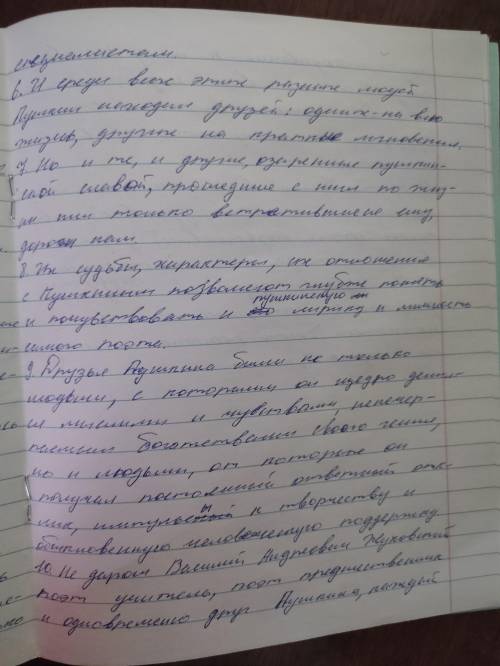 специалистам.
6. И среди всех этих разных людей
Пушкин находил друзей: одних - на всю
жизнь, других на краткие мгновения.
7 Но и те, и другие, озаренные пушкин-
ской славой, прошедшие с ним по жиз-
ни или только встратившиеся ему,
дороги нам.
8. Их судьбы, характеры, их отношения
с Пушкиным позволяют глубже понять
и почувствовать и пушкинскую лирику и личность
самого поэта.
9. Друзья Пушкина были не только
людьми, с которыми он щедро делил-
ся мыслями и чувствами, неисчер-
паемым богатством своего гения,
но и людьми, от которых он
получал постоянный ответный отк-
лик, импульсы к творчеству и
обыкновенную человеческую поддержку
10. Не даром Василий Андреевич Жуковский
поэт учитель, поэт предшественник
и одновременно друг Пушкина, каждый